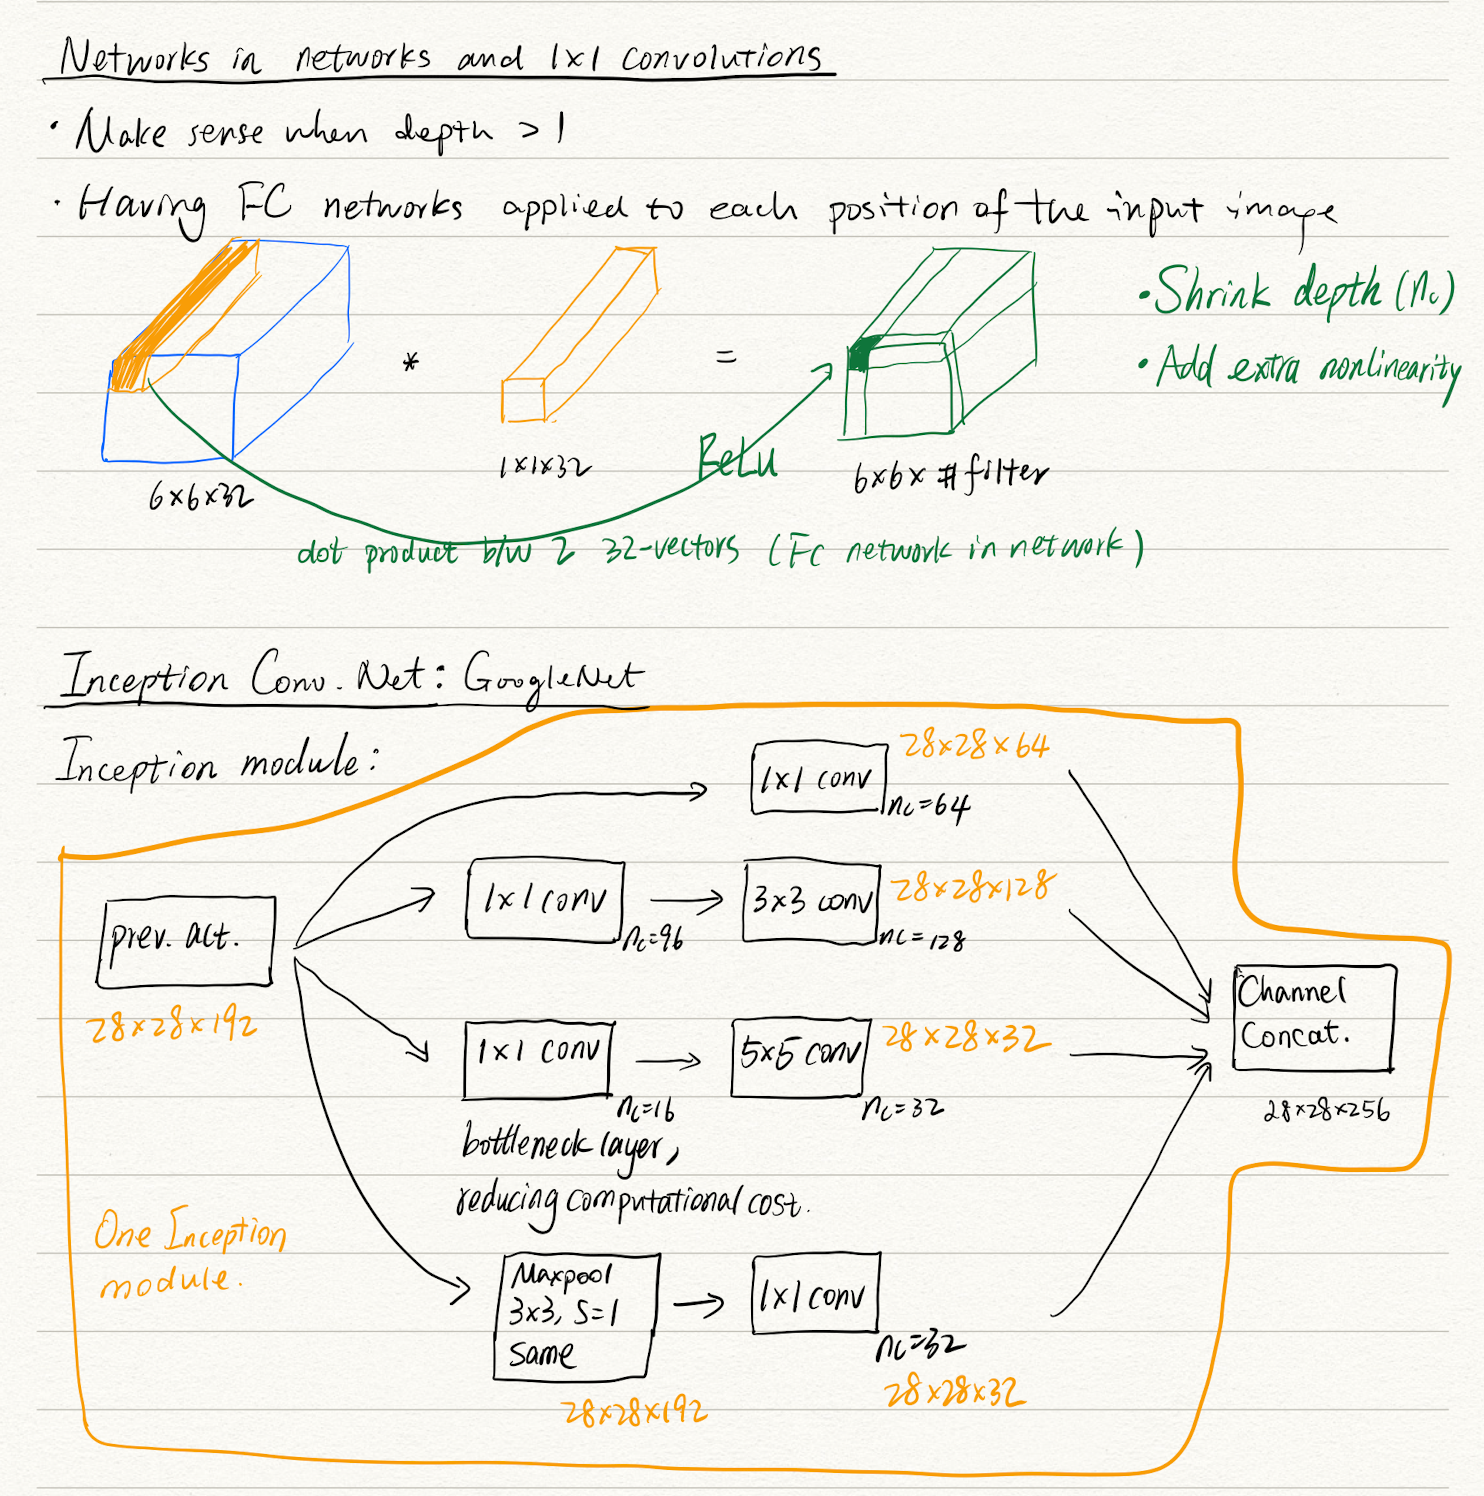 Networks in networks and 1x1 convolutions
• Make sense when depth > 1
• Having FC networks applied to each position of the input image
• Shrink depth (nc)
• Add extra nonlinearity
*
=
ReLu
6x6x32
1x1x32
6x6x #filter
dot product b/w 2 32-vectors (Fc network in network)
Inception Conv. Net: GoogleNet
Inception module:
1x1 conv
28x28x64
nc=64
1x1 conv
nc=96
3x3 conv
28x28x128
nc=128
prev. act.
28x28x192
1x1 conv
nc=16
5x5 conv
28x28x32
nc=32
bottleneck layer,
reducing computational cost.
Channel
Concat.
28x28x256
One Inception
module.
Maxpool
3x3, S=1
same
28x28x192
1x1 conv
nc=32
28x28x32